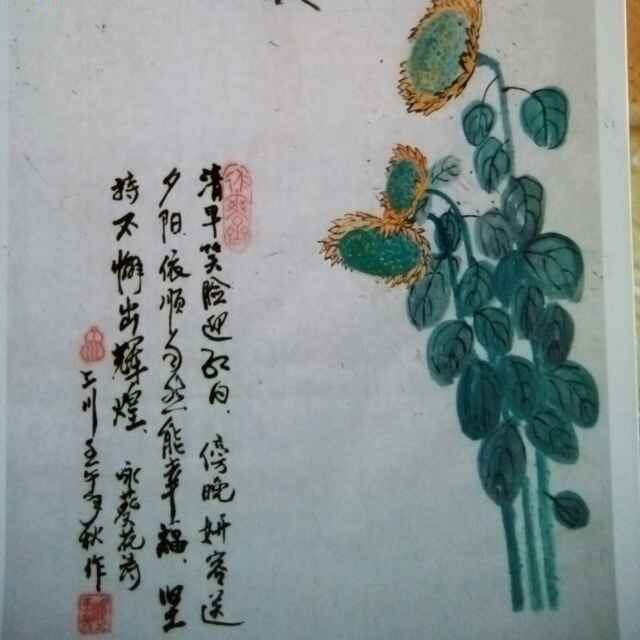 清早笑脸迎红日、傍晚妍容送
夕阳、依顺自然能幸福、坚
持不懈出辉煌、咏葵花
秋作